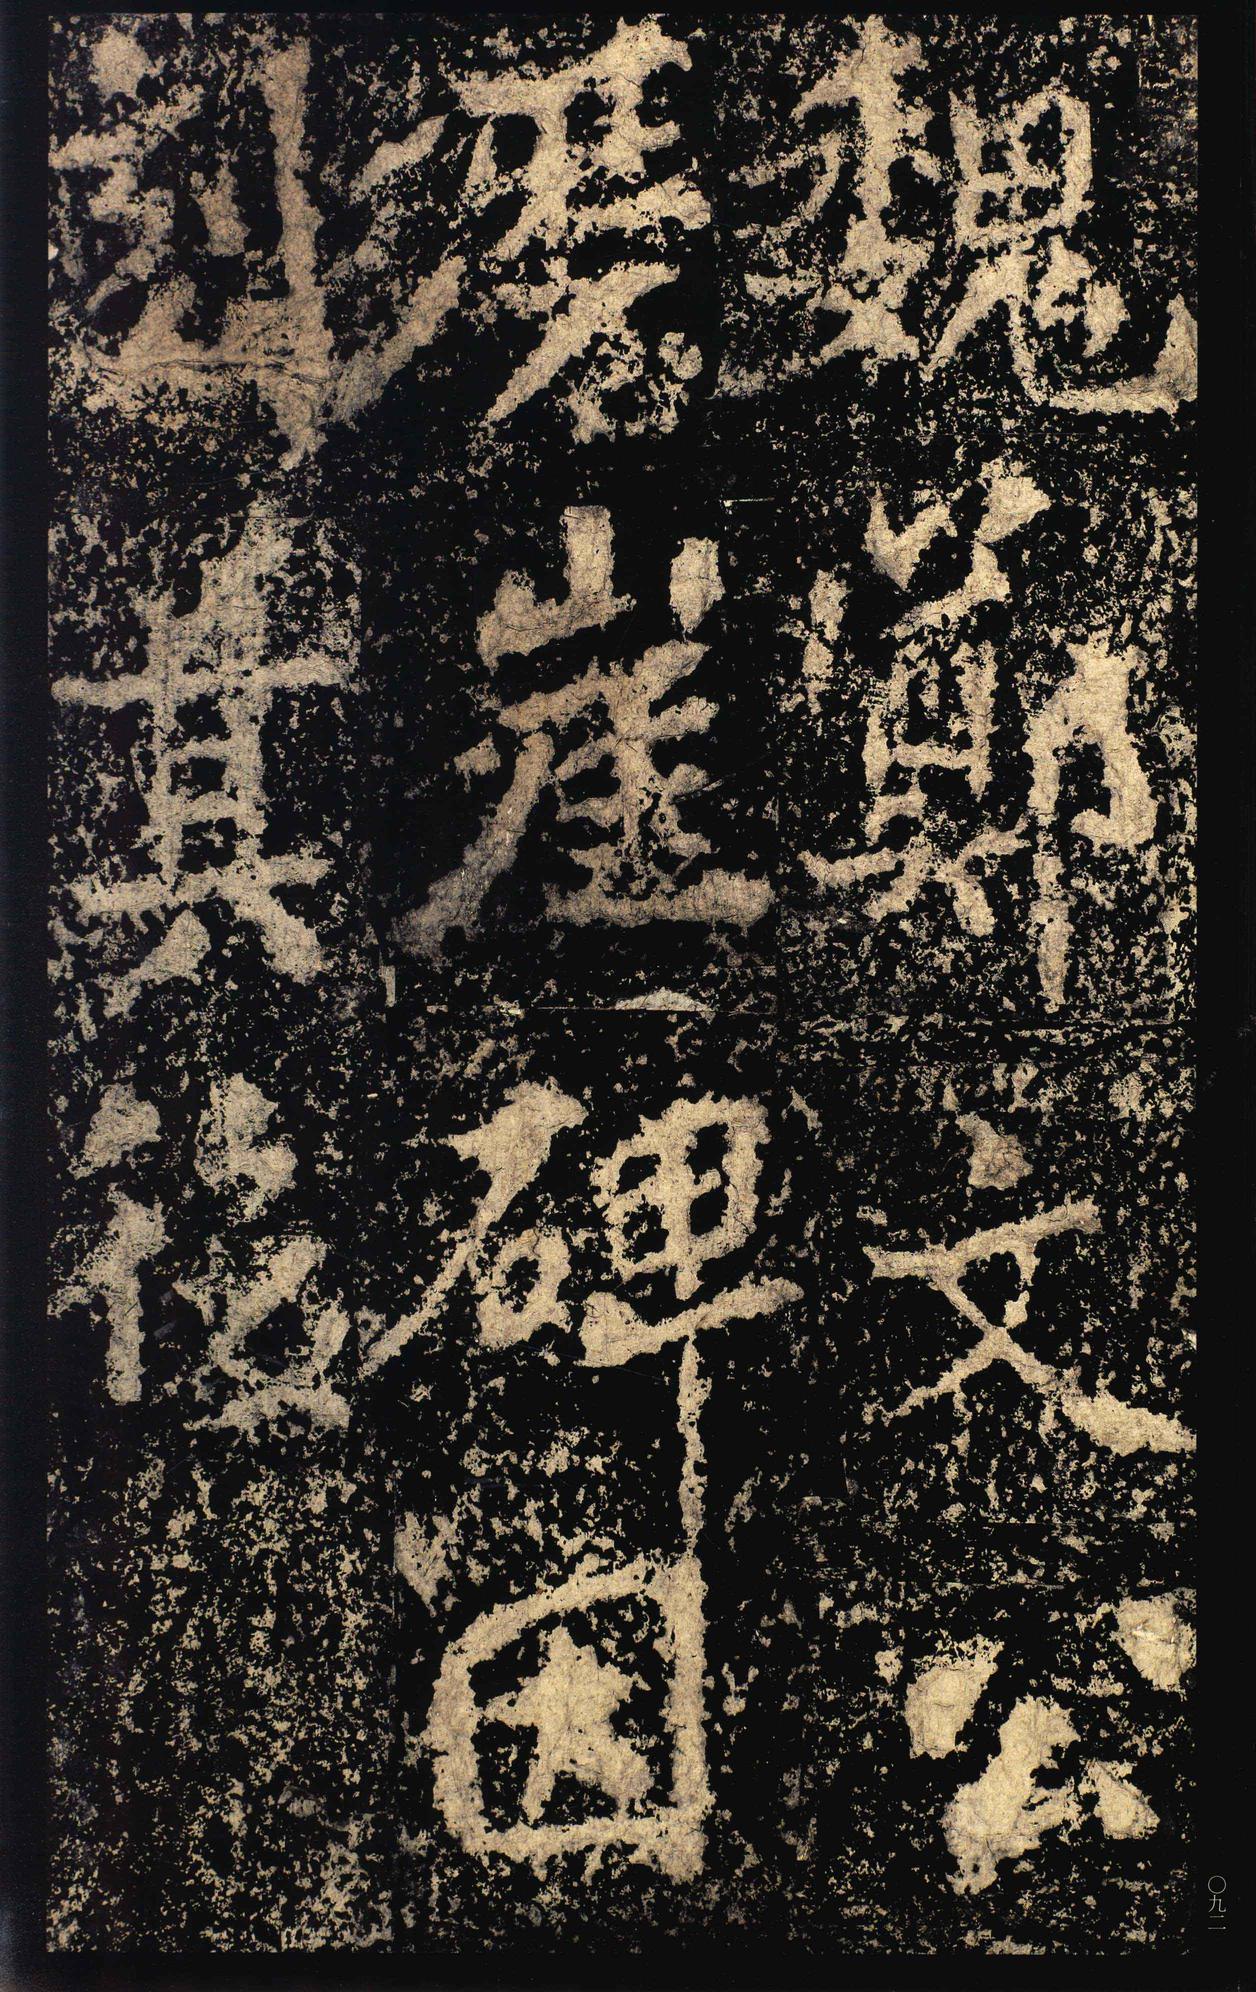 魏鄭文公
磨崖碑因
刻其後
〇九二